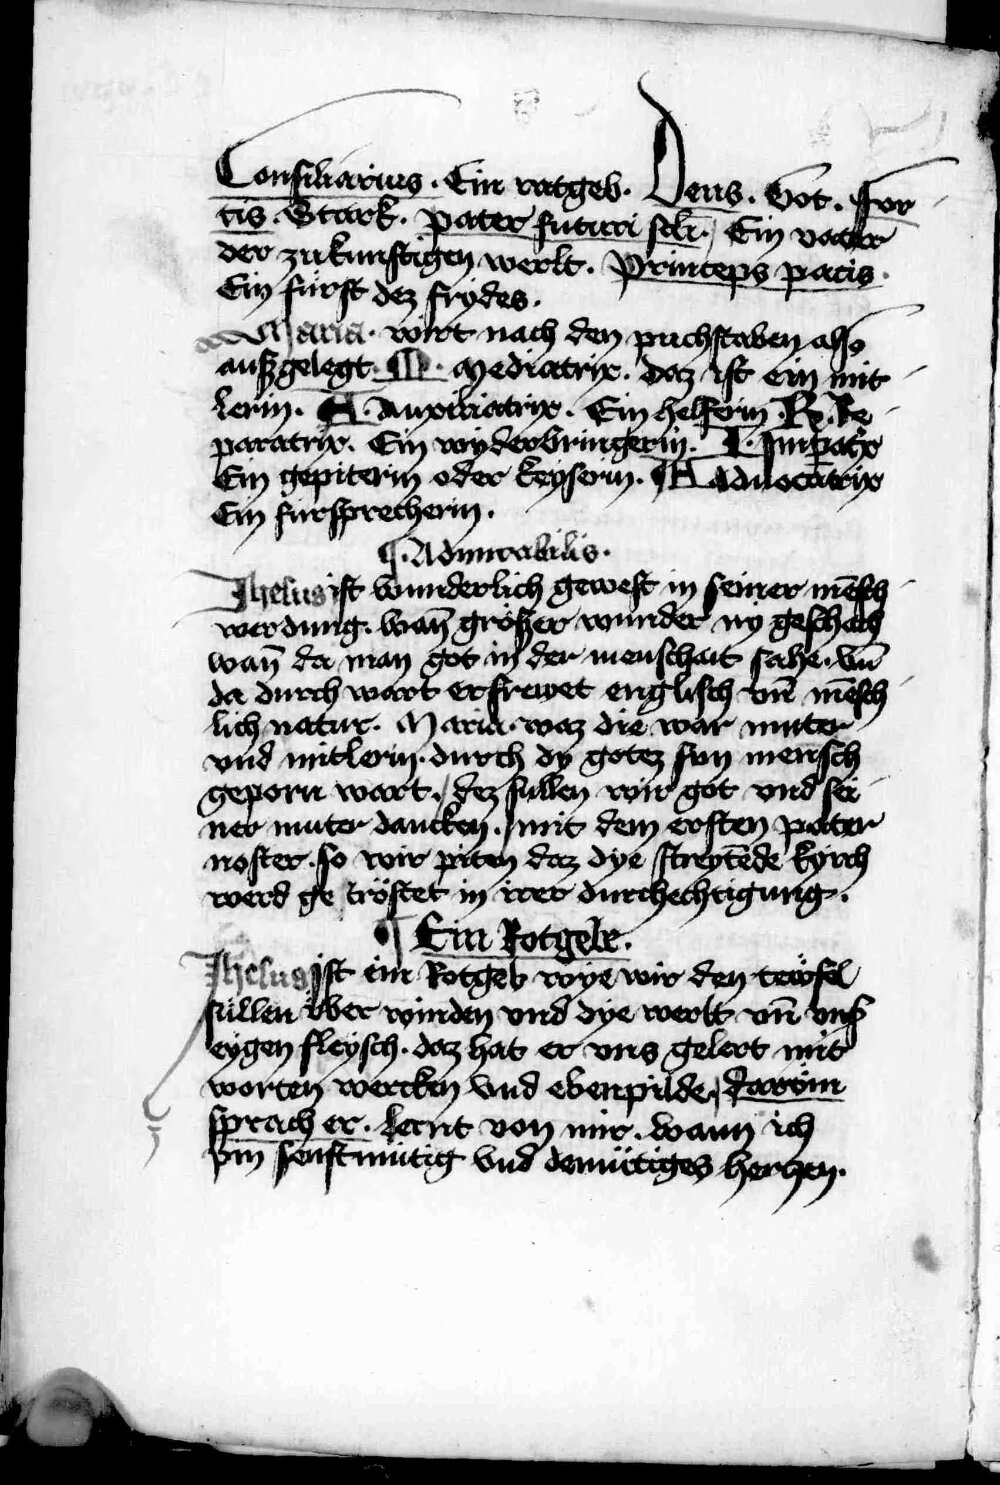 Consiliarius. Ein ratgeb. Deus. Got. For
tis Stark. pater futuri scli. Ein vater
der zukunftigen werlt. Princeps pacis.
Ein fürst dez frydes.
Maria. wirt nach den puchstaben also
außgelegt. M. Mediatrix. daz ist ein mit
lerin. A. Auxiliatrix. Ein helferin. R. Re
paratrix. Ein wyderbringerin. I. Impatrix
Ein gepiterin oder keyserin. A Aduocatrix
Ein fursprecherin.
¶. Admirabilis.
Jhesus ist wunderlich gewest in seiner mēsch
werdung. wañ größer wunder ny geschach
wañ da man got in der menschait sahe. vñ
da durch wart erfrewet englisch vñ mēsch
lich natur. Maria. waz die war muter
vnd mitlerin. durch dy gotez sun mensch
geporn wart. dez sullen wir got vnd sei
ner muter dancken. mit dem ersten pater
noster. so wir piten daz dye streytēde kyrch
werd ge tröstet in irer durchechtigung.
¶ Ein Rotgeb.
Jhesus ist ein Rotgeb wye wir den tewfel
süllen vber winden vnd dye werlt vñ vnß
eygen fleysch. daz hat er vns gelert mit
worten wercken vnd ebenpilde, darüm
sprach er. lernt von mir. wann ich
pin senftmütig vnd demütiges herzen.